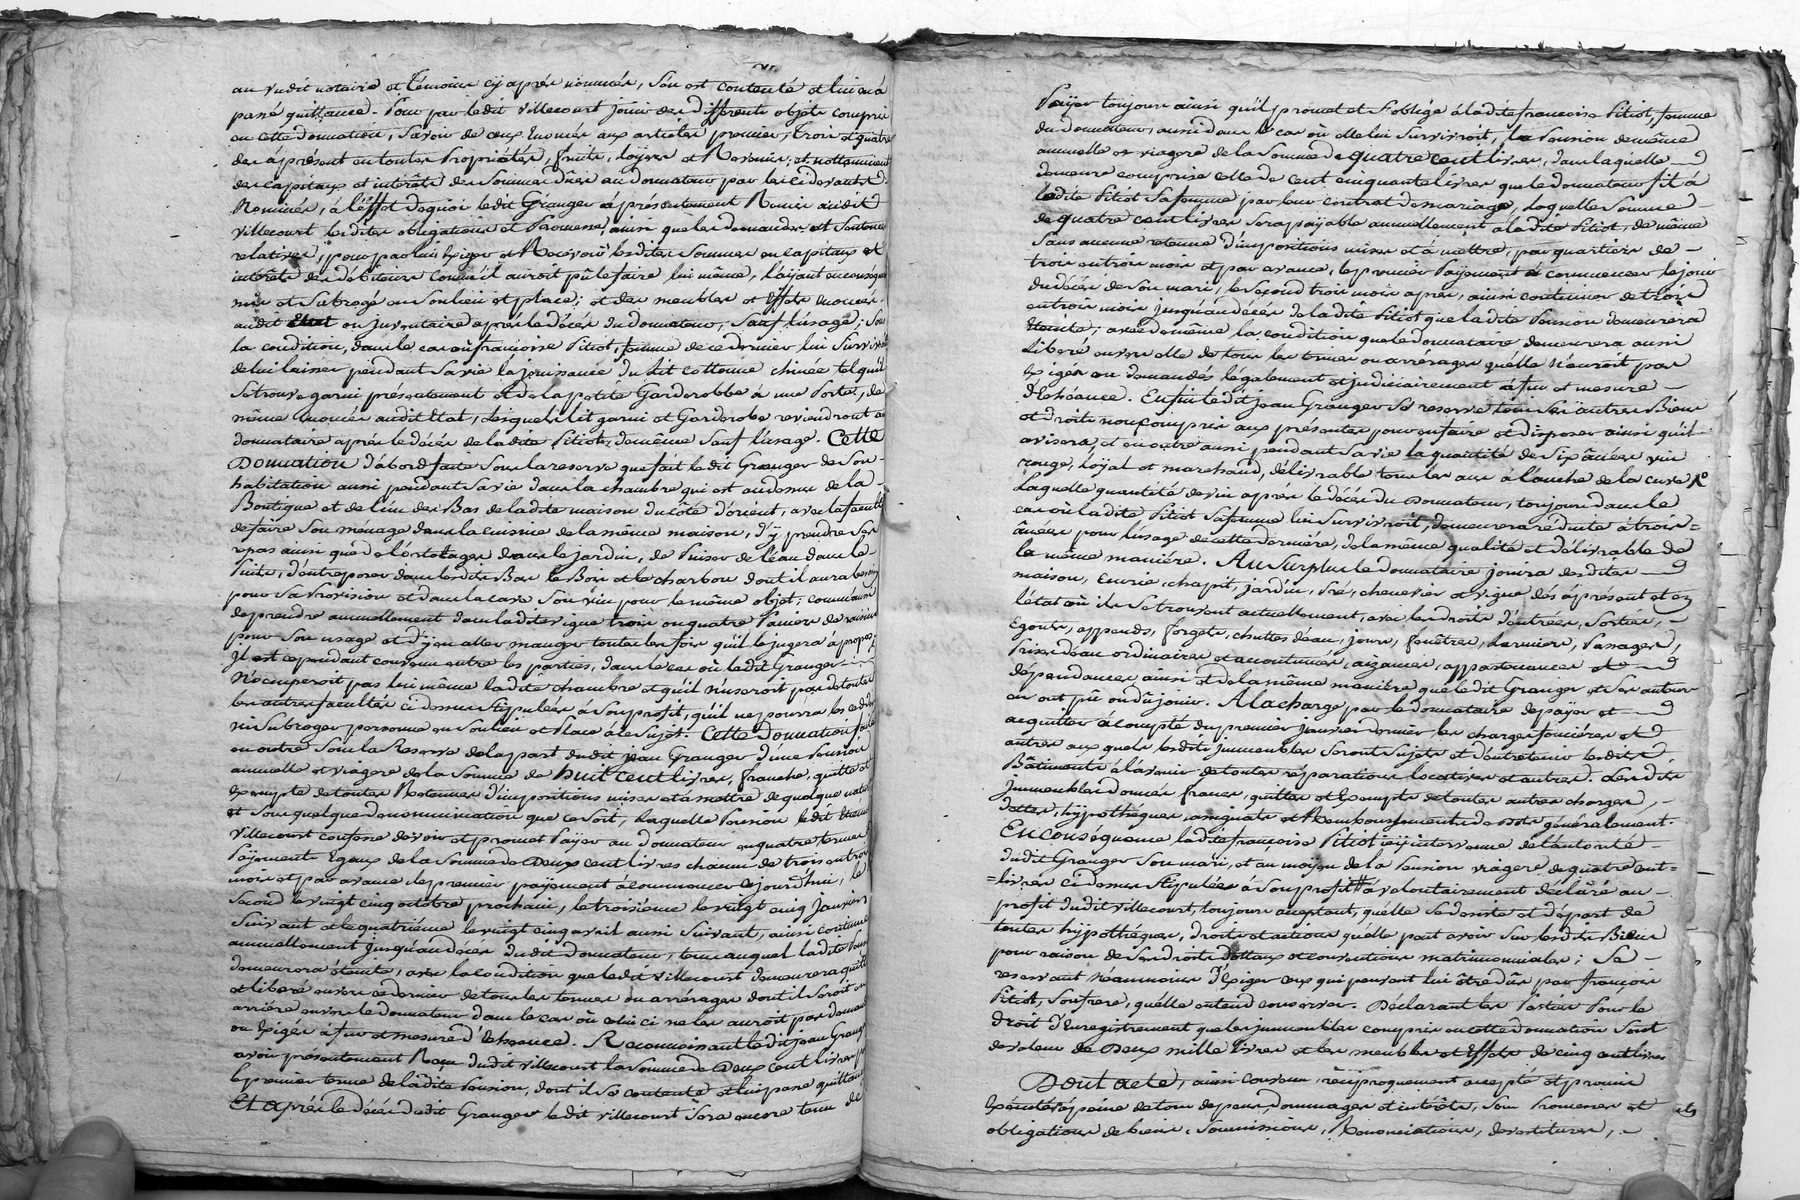 au vudit notaire et témoins cy après nommés, s'en est contenté et lui en a
passé quittance. Pour par ledit Villecourt jouir des différents objets compris
en cette donnation, savoir de ceux énoncés aux articles premier, trois et quatre
dès àprésent en toutes propriétés, fruits, loyers et Revenus, et nottamment
des capitaux et intérêts des sommes dües au donnateur par les ci devant
Nommés, à l'effet dequoi ledit Granger a présentement Remis audit
Villecourt lesdites obligations et Promesse, ainsi que les demandes et Sentences
relatives, pour par lui Exiger et Recevoir lesdites Sommes en capitaux et
intérêts des débiteurs comme il auroit pû le faire lui même, l'ayant en conséquence
mis et subrogé en son lieu et place; et des meubles et Effets énoncés
audit Etat ou inventaire après le décès du donnateur, sauf l'usage; sous
la condition, dans le cas où françoise Pitiot, femme de ce dernier lui survivroit
de lui laisser pendant sa vie la jouissance du lit cottonne chinée tel qu'il
se trouve garni présentement et de la petite Garderobbe à une Porte, de
même énoncée audit Etat, lesquels lit garni et Garderobe reviendront au
donnataire après le décès de ladite Pitiot, de même sauf l'usage. Cette
Donnation d'abord faite sous la reserve que fait ledit Granger de son
habitation aussi pendant sa vie dans la chambre qui est au dessus de la
Boutique et de l'un des Bas de ladite maison du côté d'orient, avec la faculté
de faire son ménage dans la cuisine de la même maison, d'y prendre ses
repas ainsi que de l'ortolage dans le jardin, de Puiser de l'eau dans le
Puits, d'entreposer dans lesdits Bas le Bois et le charbon dont il aura besoin
pour sa Provision et dans la cave son vin pour le même objet; comme aussi
de prendre annuellement dans ladite vigne trois ou quatre Paniers de raisins
pour son usage et d'y en aller manger toutes les fois qu'il le jugera à propos.
Il est cependant convenu entre les parties, dans le cas où ledit Granger
N'occuperoit pas lui même ladite chambre et qu'il n'useroit pas de toutes
les autres facultés ci dessus stipulées à son profit, qu'il ne pourra les céder
ni subroger personne en son lieu et Place à ce sujet. Cette Donnation faite
en outre sous la Reserve de la part dudit jean Granger d'une Pension
annuelle et viagere de la somme de huit cent livres, franche, quitte et
Exempte de toutes Retenues d'impositions mises et à mettre de quelque nature
et sous quelque dénomination que ce soit, laquelle Pension ledit Etienne
Villecourt confesse devoir et promet Payer au donnateur en quatre termes et
Payements Egaux de la Somme de Deux cent livres chacun de trois en trois
mois et par avance le premier payement à commencer ce jourd'hui, le
second le vingt cinq octobre prochain, le troisième le vingt cinq janvier
suivant et le quatrième le vingt cinq avril aussi suivant, ainsi continuer
annuellement jusqu'au décès dudit donnateur, tems auquel ladite Pension
demeurera éteinte, avec la condition que ledit Villecourt demeurera quitte
et liberé envers ce dernier de tous les termes ou arrérages dont il seroit en
arriére envers le donnateur dans le cas où celui ci ne les auroit pas demandé
ou Exigé à fur et mesure d'Echéance. Reconnoissant ledit jean Granger
avoir présentement Reçu dudit Villecourt la somme de Deux cent livres pour
le premier terme de ladite Pension, dont il se contente et lui passe quittance
Et Après le décès dudit Granger ledit Villecourt sera encore tenu de
Payer toujours ainsi qu'il promet et s'oblige à ladite françoise Pitiot, femme
du donnateur, aussi dans le cas où elle lui survivroit, la Pension de même
annuelle et viagere de la somme de quatre cent livres, dans laquelle
demeure comprise celle de cent cinquante livres que le donnateur fit à
ladite Pitiot sa femme par leur contrat de mariage, laquelle somme
de quatre cent livres sera païable annuellement à ladite Pitiot, de même
sans aucune retenue d'impositions mises et à mettre, par quartiers de
trois en trois mois et par avance, le premier Payement à commencer le jour
du décès de son mari, le second trois mois après, ainsi continuer de trois
en trois mois jusqu'au décès de ladite Pitiot que ladite Pension demeurera
éteinte; avec de même la condition que le donnataire demeurera aussi
Liberé envers elle de tous les termes ou arrérages qu'elle n'auroit pas
Exigés ou demandés légalement et judiciairement à fur et mesure
d'Echéance. Enfin ledit jean Granger se reserve tous ses autres Biens
et droits non compris aux présentes pour en faire et disposer ainsi qu'il
avisera, et en outre aussi pendant sa vie la quantité de six ânées vin
rouge, loyal et marchand, délivrable tous les ans à l'anche de la cuve
Laquelle quantité de vin après le décès du Donnateur, toujours dans le
cas où ladite Pitiot sa femme lui survivroit, demeurera réduite à trois
ânées pour l'usage de cette derniére, de la même qualité et délivrable de
la même maniére. Au Surplus le donnataire jouira desdites
maison, Ecurie, chapit, jardin, Pré, chenevier et vigne dès à présent et en
l'état où ils se trouvent actuellement, avec les droits d'entrées, sorties,
Egouts, appends, forgets, chuttes d'eau, jours, fenêtres, larmiers, Passages,
Prises d'eau ordinaires et accoutumés, aizances, appartenances et
dépendances ainsi et de la même maniére que ledit Granger et ses auteurs
en ont pû ou dû jouir. A la charge par le donnataire de payer et
acquitter à compter du premier janvier dernier les charges fonciéres et
autres aux quels lesdits immeubles seront sujets et d'entretenir lesdits
Bâtiments à l'avenir de toutes réparations locatives et autres. Lesdits
immeubles donnés francs, quittes et Exempts de toutes autres charges,
dettes, hypothéques, assignats et Remboursements de Dots généralement.
En conséquence ladite françoise Pitiot icy intervenue de l'autorité
dudit Granger son mari, et au moyen de la Pension viagere de quatre cent
livres ci dessus stipulée à son profit a volontairement déclaré au
profit dudit Villecourt, toujours acceptant, qu'elle se désiste et départ de
toutes hypothéques, droits et actions qu'elle peut avoir sur lesdits Biens
pour raison de ses droits dottaux et conventions matrimoniales; Se
reservant néanmoins d'Exiger ceux qui peuvent lui être dûs par françois
Pitiot, son frere, qu'elle entend conserver. Déclarant les Parties Pour le
droit d'Enregistrement que les immeubles compris en cette donnation sont
de valeur de Deux mille livres et les meubles et Effets de cinq cent livres
Dont acte, ainsi convenu, réciproquement accepté et promis
Exécuter à peine de tous dépens, dommages et intérêts, sous Promesses et
obligations de biens, soumissions, Renonciations, devestitures,